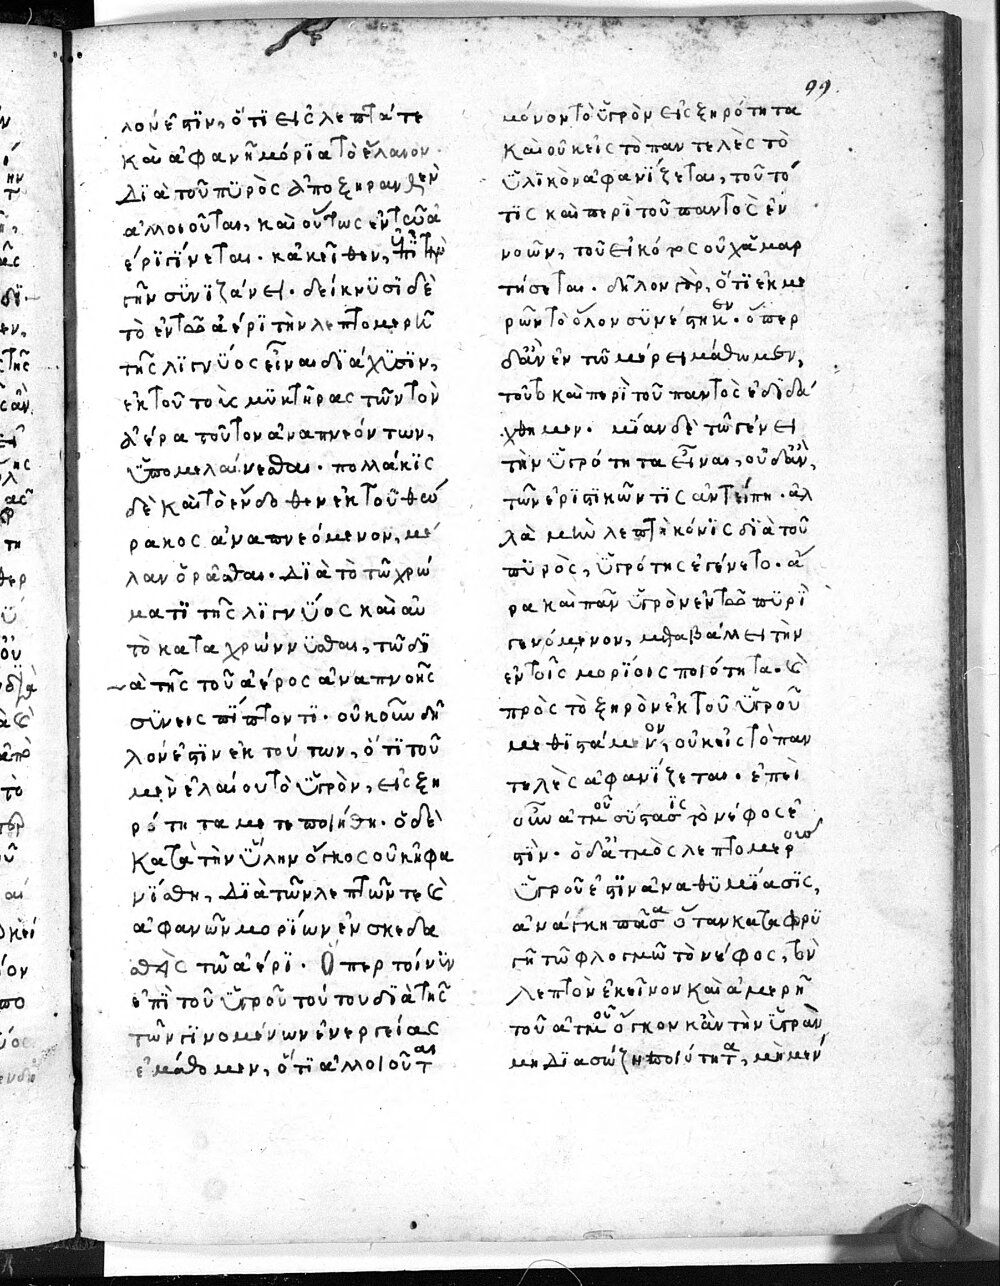 99
λόν ἐστιν, ὅτι εἰς λεπτά τε
καὶ ἀφανῆ μόρια τὸ ἔλαιον
διὰ τοῦ πυρὸς ἀποξηρανθὲν
ἀλλοιοῦται, καὶ οὕτως ἐν τῷ ἀ
έρι γίνεται. κἀκεῖθεν, ἐπὶ τὴν
γῆν συνιζάνει. δείκνυσι δὲ
τὸ ἐν τῷ ἀέρι τὴν λεπτομερῆ
τῆς λιγνύος εἶναι διάχυσιν,
ἐκ τοῦ τοὺς μυκτῆρας τῶν τὸν
ἀέρα τοῦτον ἀναπνεόντων,
ὑπομελαίνεσθαι. πολλάκις
δὲ καὶ τὸ ἔνδοθεν ἐκ τοῦ θώ
ρακος ἀναπνεόμενον, μέ
λαν ὁρᾶσθαι. διὰ τὸ τῷ χρώ
ματι τῆς λιγνύος καὶ αὐ
τὸ καταχρώννυσθαι, τῷ δι
ὰ τῆς τοῦ ἀέρος ἀναπνοῆς
συνεισπίπτοντι. οὐκοῦν δῆ
λόν ἐστιν ἐκ τούτων, ὅτι τοῦ
μὲν ἐλαίου τὸ ὑγρὸν, εἰς ξη
ρότητα μετεποιήθη. ὁ δὲ
κατὰ τὴν ὕλην ὄγκος οὐκ ἠφα
νίσθη, διὰ τῶν λεπτῶν τε καὶ
ἀφανῶν μορίων ἐνσκεδα
σθεὶς τῷ ἀέρι. Ὅπερ τοίνυν
ἐπὶ τοῦ ὑγροῦ τούτου διὰ τῆς
τῶν γινομένων ἐνεργείας
ἐμάθομεν, ὅτι ἀλλοιοῦται
μόνον τὸ ὑγρὸν εἰς ξηρότητα
καὶ οὐκ εἰς τὸ παντελὲς τὸ
ὑλικὸν ἀφανίζεται, τοῦτό
τις καὶ περὶ τοῦ παντὸς ἐν
νοῶν, τοῦ εἰκότος οὐχ ἁμαρ
τήσεται. δῆλον γὰρ, ὅτι ἐκ με
ρῶν τὸ ὅλον συνέστηκεν. ὅπερ
δ' ἂν ἐν τῷ μέρει μάθωμεν,
τοῦτο καὶ περὶ τοῦ παντὸς ἐδιδά
χθημεν. μίαν δὲ τῷ γένει
τὴν ὑγρότητα εἶναι, οὐδ' ἂν,
τῶν ἐριστικῶν τις ἀντείπῃ. ἀλ
λὰ μὴν λεπτὴ κόνις διὰ τοῦ
πυρὸς, ὑγρότης ἐγένετο. ἄ
ρα καὶ πᾶν ὑγρὸν ἐν τῷ πυρὶ
γενόμενον, μεταβάλλει τὴν
ἐν τοῖς μορίοις ποιότητα. καὶ
πρὸς τὸ ξηρὸν ἐκ τοῦ ὑγροῦ
μεθιστάμενον, οὐκ εἰς τὸ παν
τελὲς ἀφανίζεται. ἐπεὶ
οὖν ἀτμοῦ σύστασις τὸ νέφος ἐ
στὶν. ὁ δ' ἀτμὸς λεπτομεροῦς
ὑγροῦ ἐστιν ἀναθυμίασις,
ἀνάγκη πᾶσα ὅταν καταφρύ
γῃ τῷ φλογμῷ τὸ νέφος, τὸν
λεπτὸν ἐκεῖνον καὶ ἀμερῆ
τοῦ ἀτμοῦ ὄγκον κἂν τὴν ὑγρὰν
μὴ διασώζῃ ποιότητα, μὴ μέν